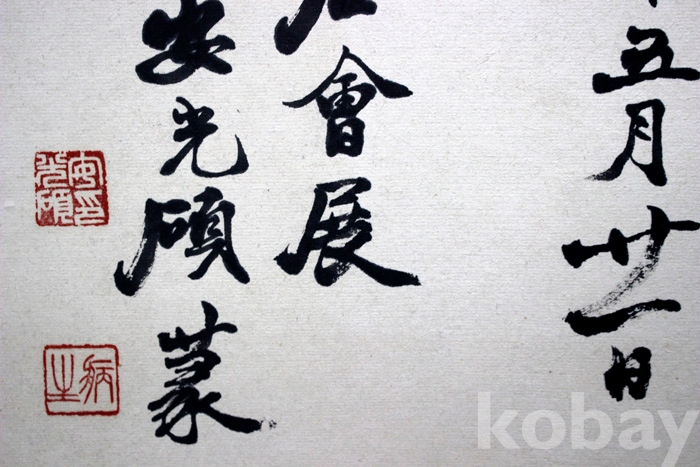 五月廿一日
會展
安光碩篆
安光碩印
kobay